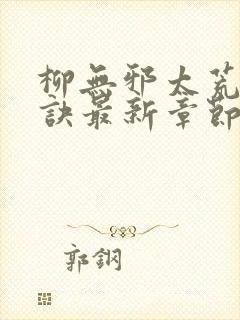 柳無邪太荒
訣最新章節
郭鋼